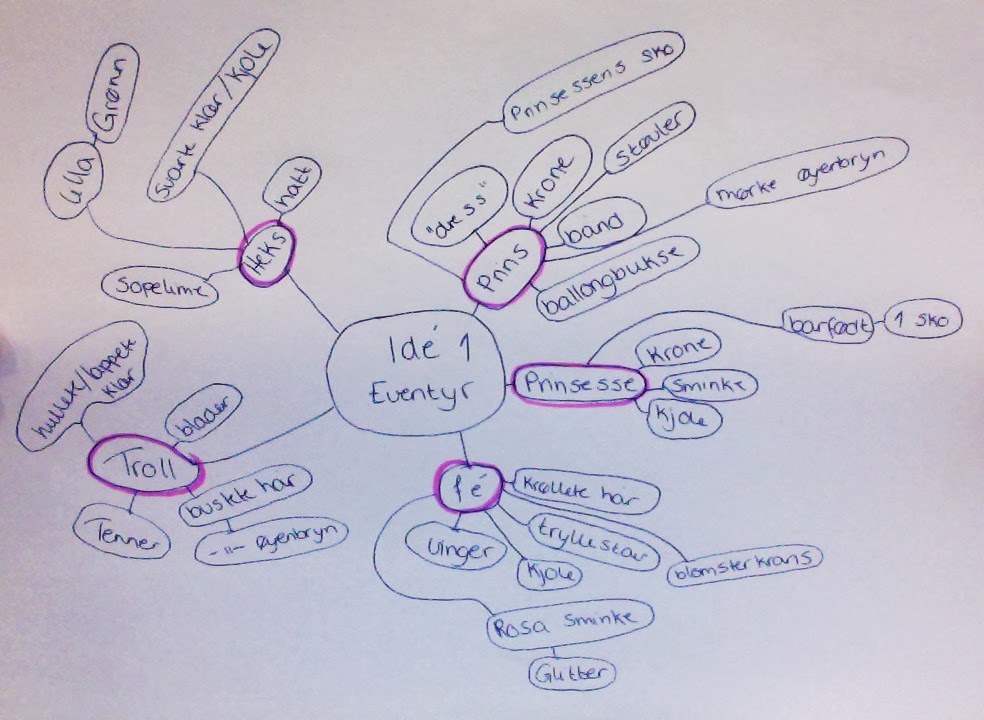 Idé 1
Eventyr
Heks
Lilla
Grønn
Svarte klær/kjole
hatt
Sopelime
Prins
Prinsessens sko
"dress"
Krone
støvler
bånd
mørke øyenbryn
ballongbukse
Prinsesse
barfødt
1 sko
Krone
Sminke
Kjole
fé
Krøllete hår
tryllestav
blomsterkrans
Kjole
Vinger
Rosa sminke
Glitter
Troll
hullete/lappete
klær
blader
bustete hår
-"- øyenbryn
Tenner